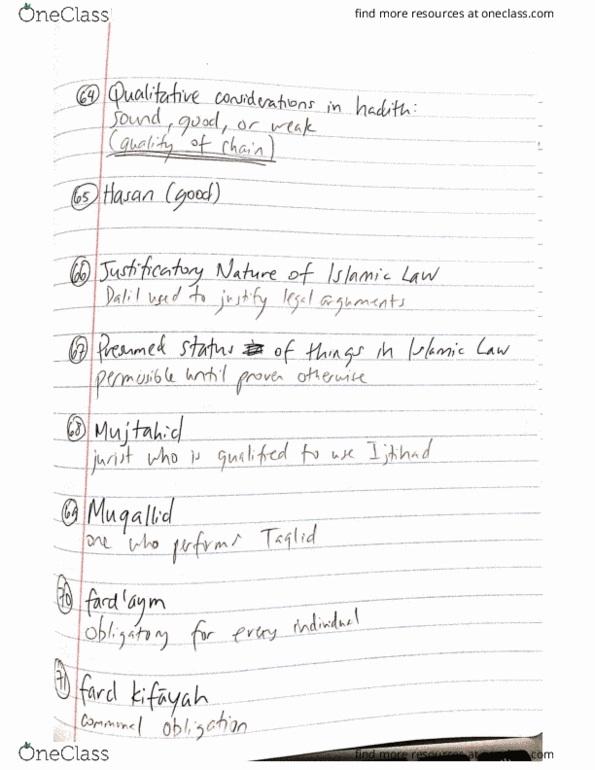 OneClass
find more resources at oneclass.com
64 Qualitative considerations in hadith:
sound, good, or weak
(quality of chain)
65 Hasan (good)
66 Justificatory Nature of Islamic Law
Dalil used to justify legal arguments
67 Presumed status of things in Islamic Law
permissible until proven otherwise
68 Mujtahid
jurist who is qualified to use Ijtihad
69 Muqallid
one who performs Taqlid
70 fard 'aym
obligatory for every individual
71 fard kifāyah
communal obligation
OneClass
find more resources at oneclass.com